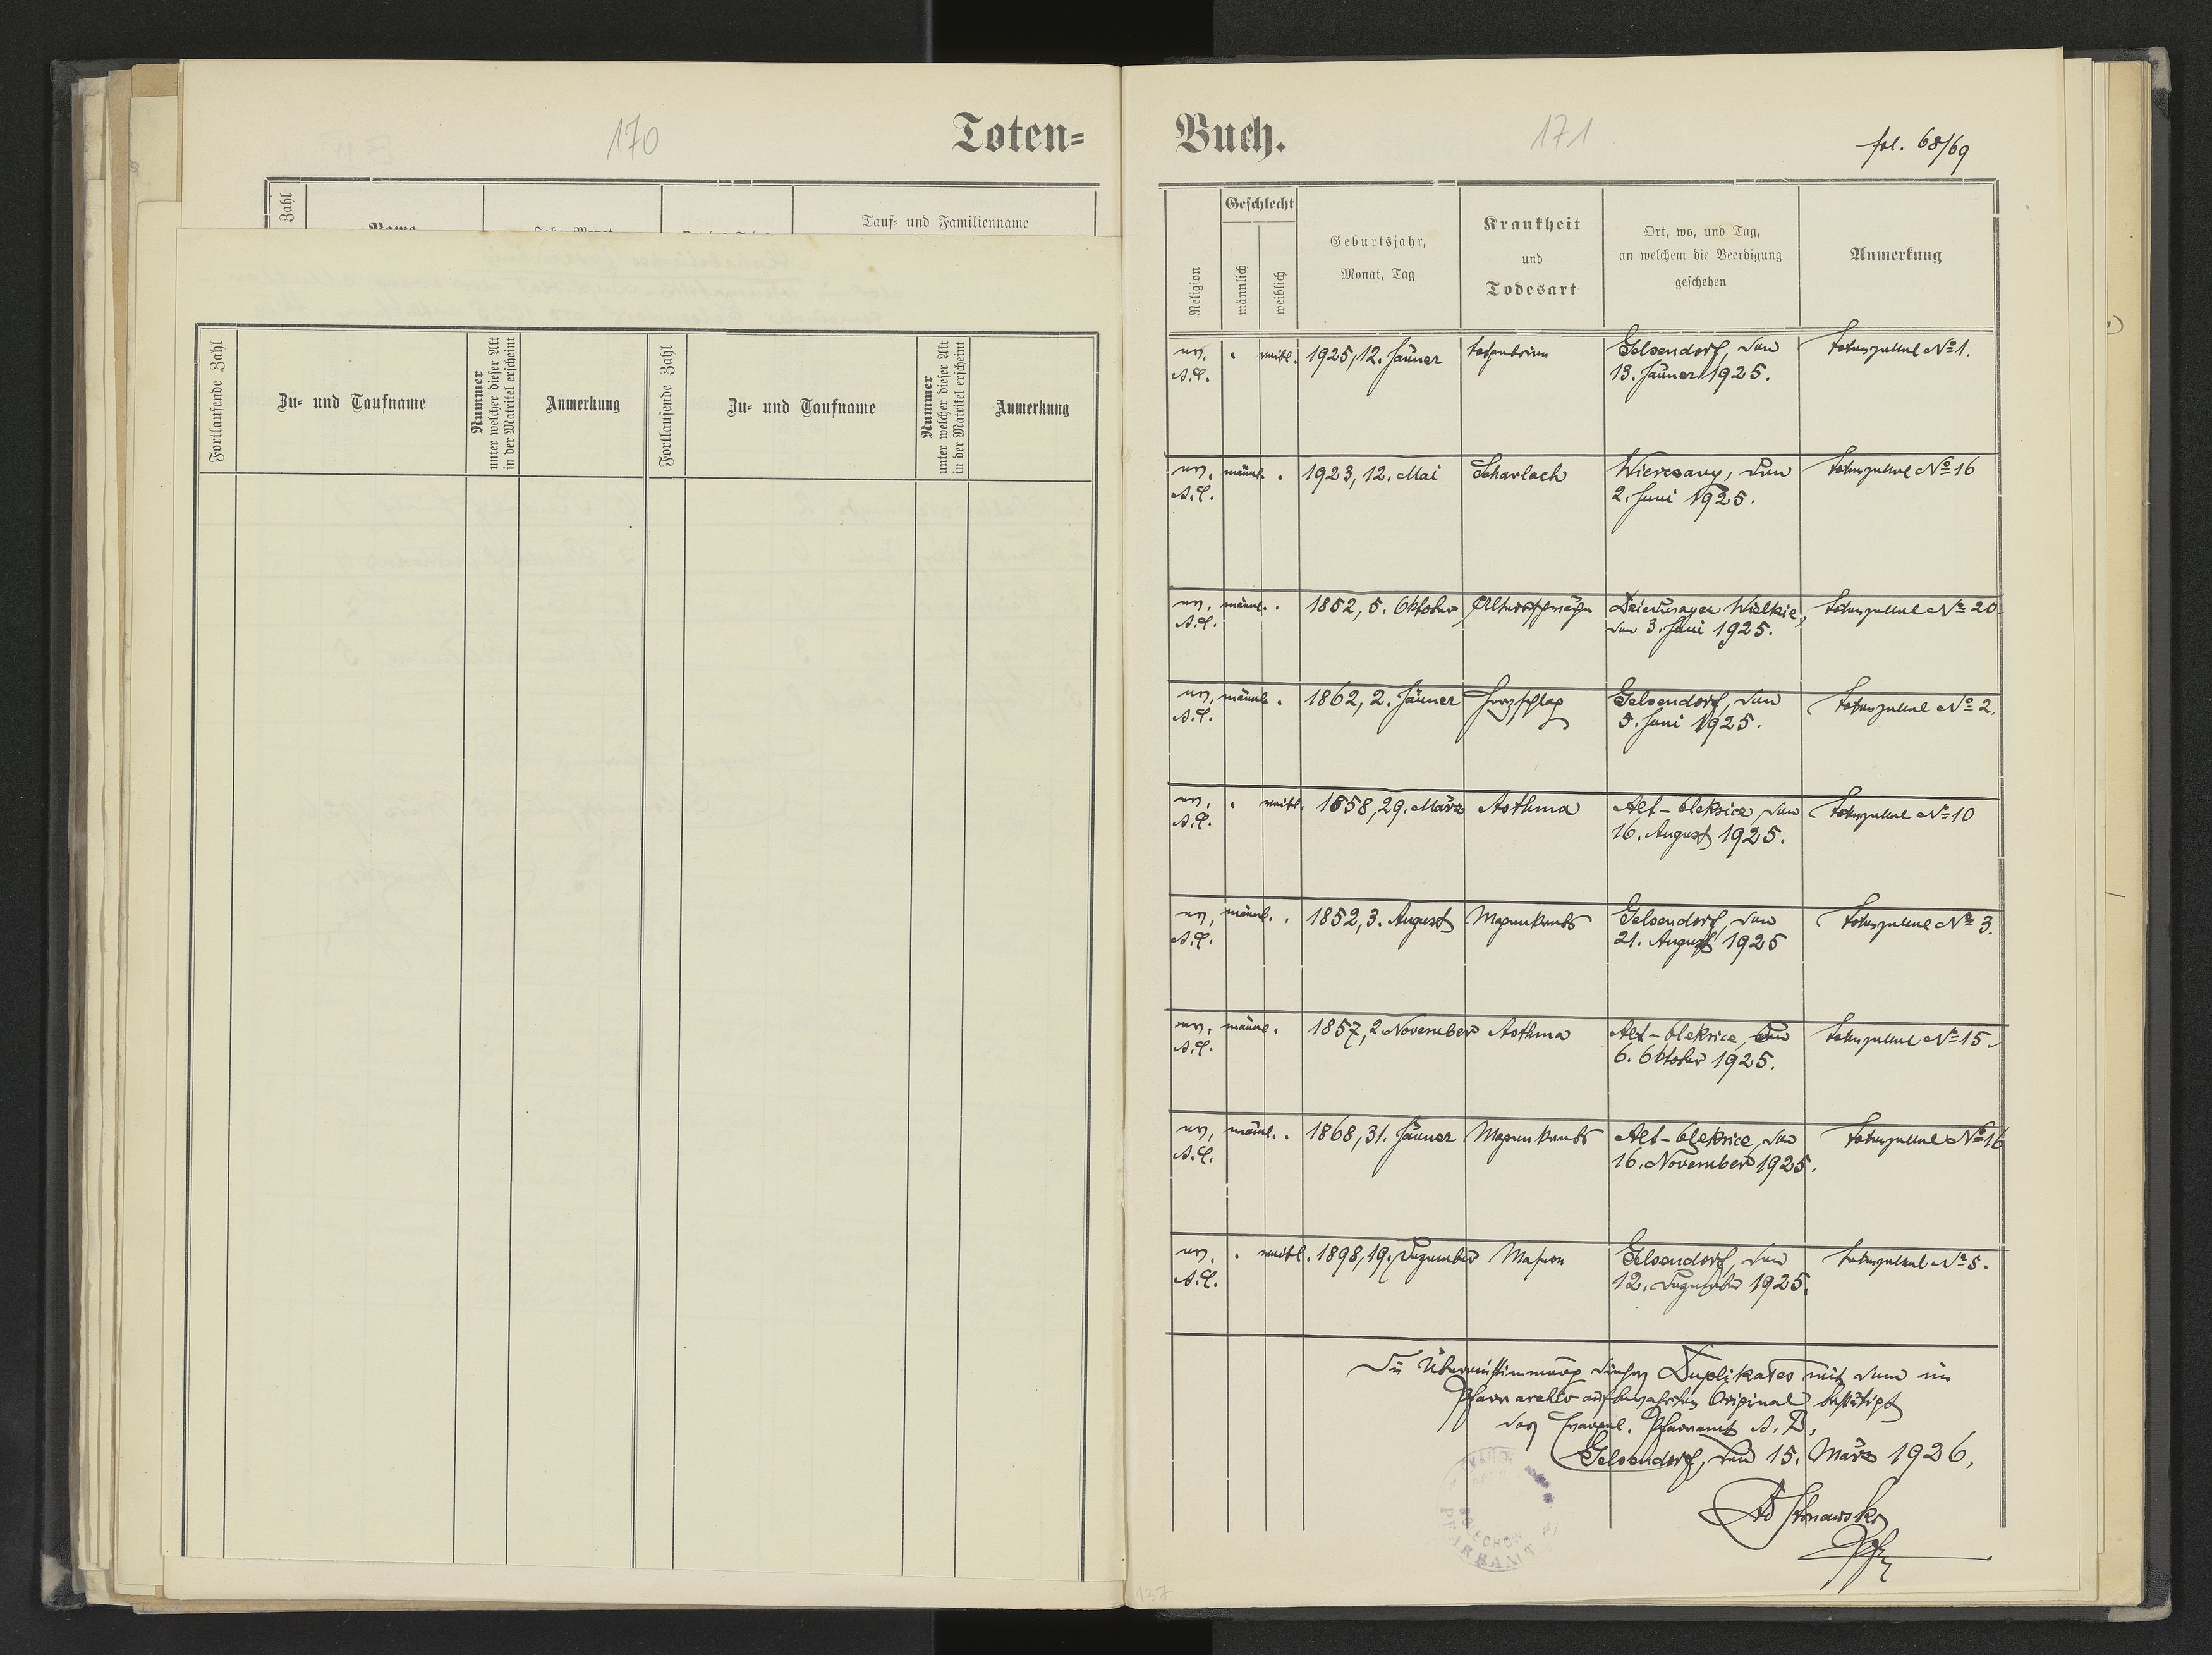 170
Toten=
Zahl
Name
Tauf= und Familienname
Fortlaufende Zahl
Zu= und Taufname
Nummer
unter welcher dieser Akt
in der Matrikel erscheint
Anmerkung
Fortlaufende Zahl
Zu= und Taufname
Nummer
unter welcher dieser Akt
in der Matrikel erscheint
Anmerkung
Buch.
171
fol. 68/69
Religion
Geschlecht
männlich
weiblich
Geburtsjahr,
Monat, Tag
Krankheit
und
Todesart
Ort, wo, und Tag,
an welchem die Beerdigung
geschehen
Anmerkung
ev. weibl. 1925, 12. Jänner totgeboren Gelsendorf, den Totenzettel No 1.
A.C. 13. Jänner 1925.
ev. männl. 1923, 12. Mai Scharlach Wierczany, den Totenzettel No 16
A.C. 2. Juni 1925.
ev. männl. 1852, 5. Oktober Altersschwäche Wielkie, Totenzettel No 20
A.C. den 3. Juni 1925.
ev. männl. 1862, 2. Jänner Herzschlag Gelsendorf, den Totenzettel No 2.
A.C. 5. Juni 1925.
ev. weibl. 1858, 29. März Asthma Alt-Oleksice, den Totenzettel No 10
A.C. 16. August 1925.
ev. männl. 1852, 3. August Magenkrebs Gelsendorf, den Totenzettel No 3.
A.C. 21. August 1925
ev. männl. 1857, 2. November Asthma Alt-Oleksice, den Totenzettel No 15.
A.C. 6. Oktober 1925.
ev. männl. 1868, 31. Jänner Magenkrebs Alt-Oleksice, den Totenzettel No 16
A.C. 16. November 1925.
ev. weibl. 1898, 19. Dezember Masern Gelsendorf, den Totenzettel No 5.
A.C. 12. Dezember 1925.
Die Übereinstimmung dieses Duplikates mit dem im
Pfarrarchiv aufbewahrten Original bestätigt
das Evangel. Pfarramt A. B.
Gelsendorf, den 15. März 1926.
PFARRAMT
137